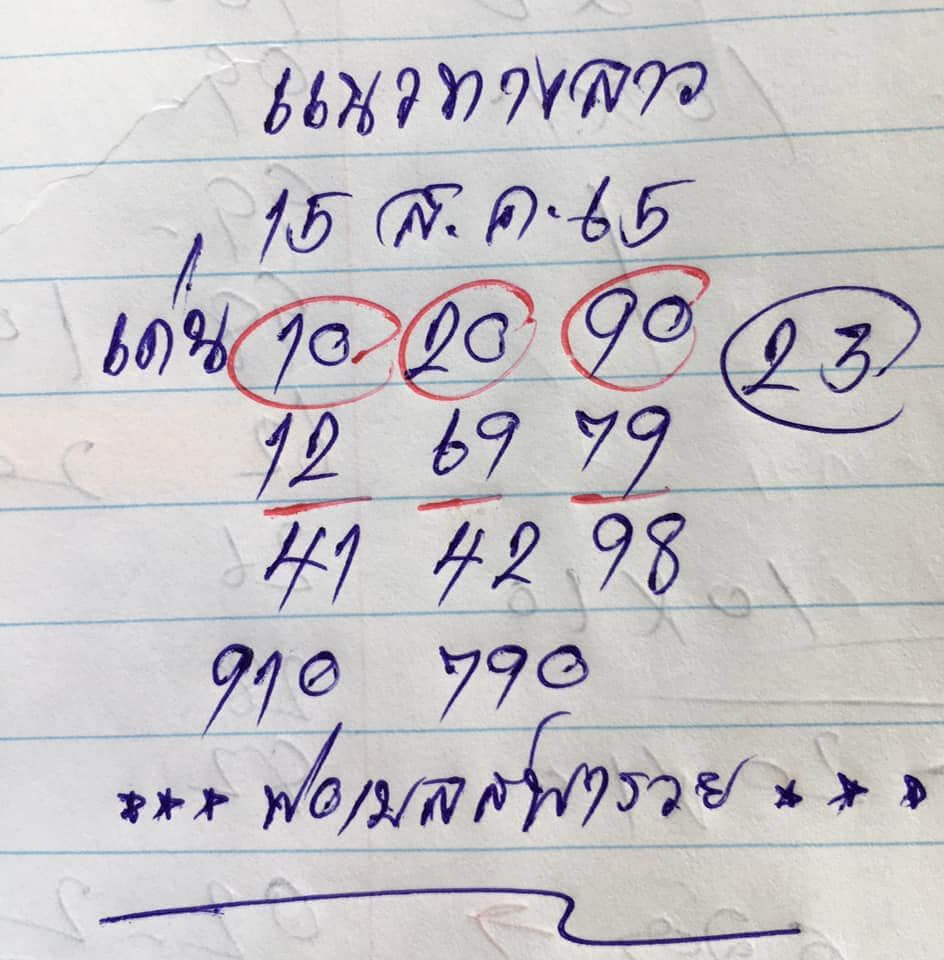 แนวทางลาว
15 ส.ค.65
เด่น 10 20 90 23
12 69 79
41 42 98
910 790
*** พ่อเมลสพารวย ***